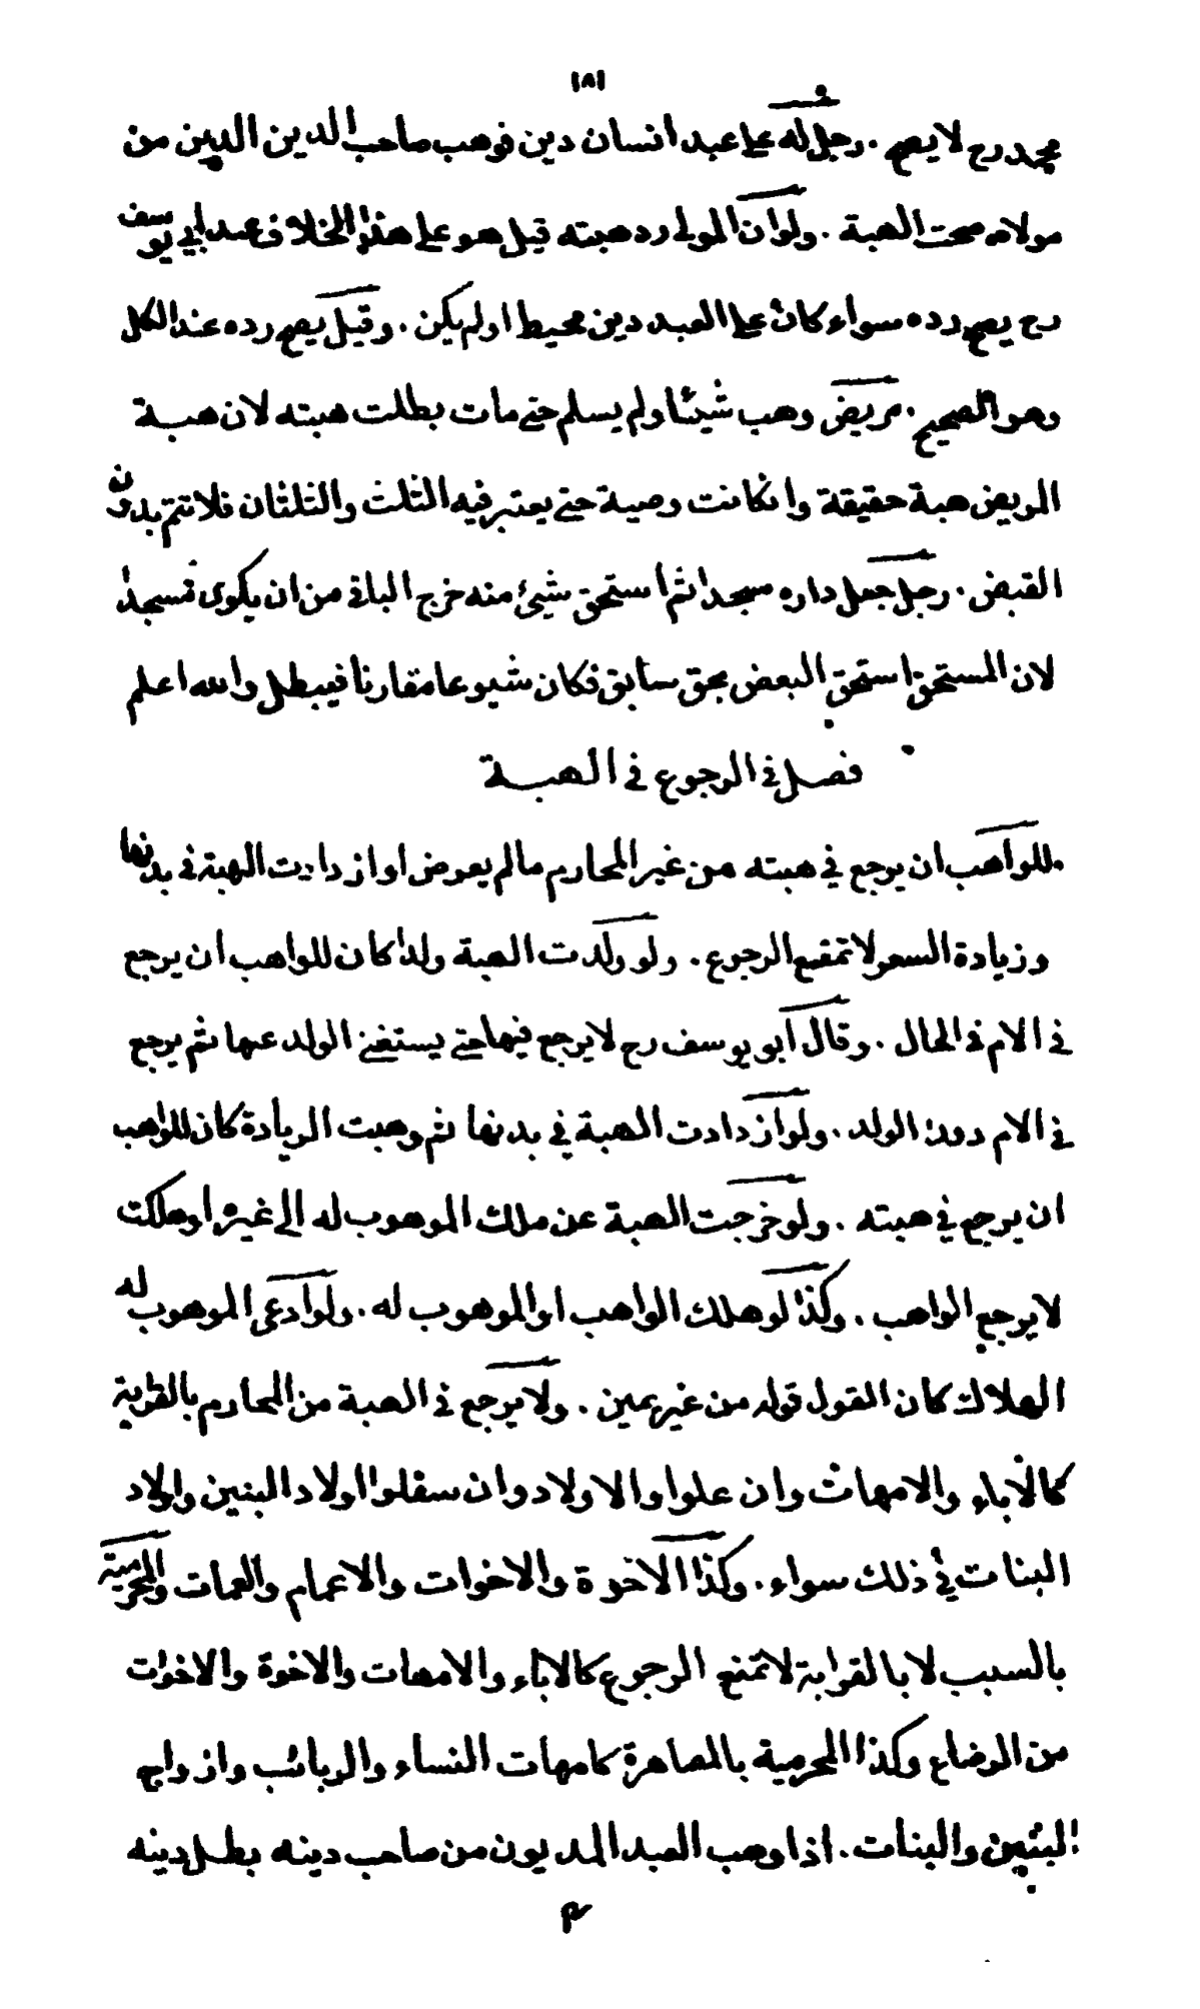 ١٨١
محمد رح لا يصح . رجل له على عبد انسان دين فوهب صاحب الدين الدين من
مولاه صحت الهبة . ولو ان المولى رد هبته قيل هو على هذا الخلاف عند ابي يوسف
رح يصح رده سواء كان على العبد دين محيط او لم يكن . وقيل يصح رده عند الكل
وهو الصحيح . مريض وهب شيئا ولم يسلم حتى مات بطلت هبته لان هبة
المريض هبة حقيقة وانكانت وصية حتى يعتبر فيه الثلث والثلثان فلا تتم بدون
القبض . رجل جعل داره مسجدا ثم استحق شيئ منه خرج الباقي من ان يكون مسجدا
لان المستحق استحق البعض بحق سابق فكان شيوعا مقارنا فيبطل والله اعلم
فصل في الرجوع في الهبة
للواهب ان يرجع في هبته من غير المحارم مالم يعوض او ازدادت الهبة في بدنها
وزيادة السعر لا تمنع الرجوع . ولو ولدت الهبة ولدا كان للواهب ان يرجع
في الام في الحال . وقال ابو يوسف رح لا يرجع فيها حتى يستغني الولد عنها ثم يرجع
في الام دون الولد . ولو ازدادت الهبة في بدنها ثم وهبت الزيادة كان للواهب
ان يرجع في هبته . ولو خرجت الهبة عن ملك الموهوب له الى غيره او هلكت
لا يرجع الواهب . وكذا لو هلك الواهب او الموهوب له . ولو ادعى الموهوب له
الهلاك كان القول قوله من غير يمين . ولا يرجع في الهبة من المحارم بالقرابة
كالآباء والامهات وان علوا والاولاد وان سفلوا اولاد البنين واولاد
البنات في ذلك سواء . وكذا الاخوة والاخوات والاعمام والعمات والمحرمية
بالسبب لا بالقرابة لا تمنع الرجوع كالآباء والامهات والاخوة والاخوات
من الرضاع وكذا المحرمية بالمصاهرة كامهات النساء والربائب وازواج
البنين والبنات . اذا وهب العبد المديون من صاحب دينه بطل دينه